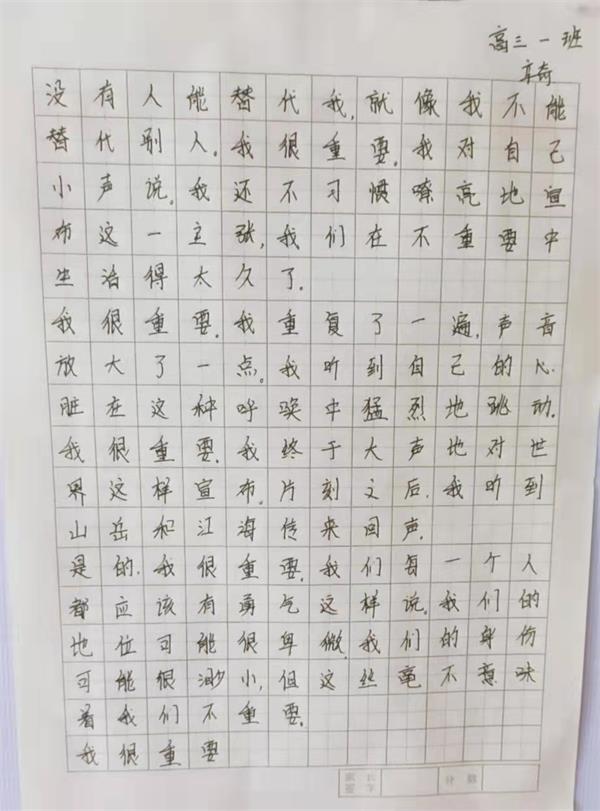 高三一班
亲奇
没有人能替代我,就像我不能
替代别人。我很重要。我对自己
小声说。我还不习惯嘹亮地宣
布这一主张,我们在不重要中
生活得太久了.
我很重要.我重复了一遍,声音
放大了一点。我听到自己的心
脏在这种呼唤中猛烈地跳动.
我很重要.我终于大声地对世
界这样宣布.片刻之后.我听到
山岳和江海传来回声.
是的.我很重要.我们每一个人
都应该有勇气这样说.我们的
地位可能很卑微.我们的身份
可能很渺小,但这丝毫不意味
着我们不重要.
我很重要
家长签字
分数